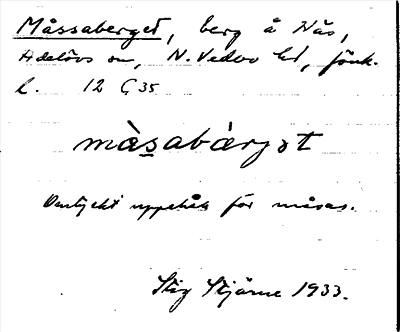 Måssaberget, berg å Näs,
Adelövs sn, N. Vedbo hd, Jönk.
l. 12 Ç 35
màsabàrgət
Omtyckt uppehåll för måsar.
Stig Stjärne 1933.